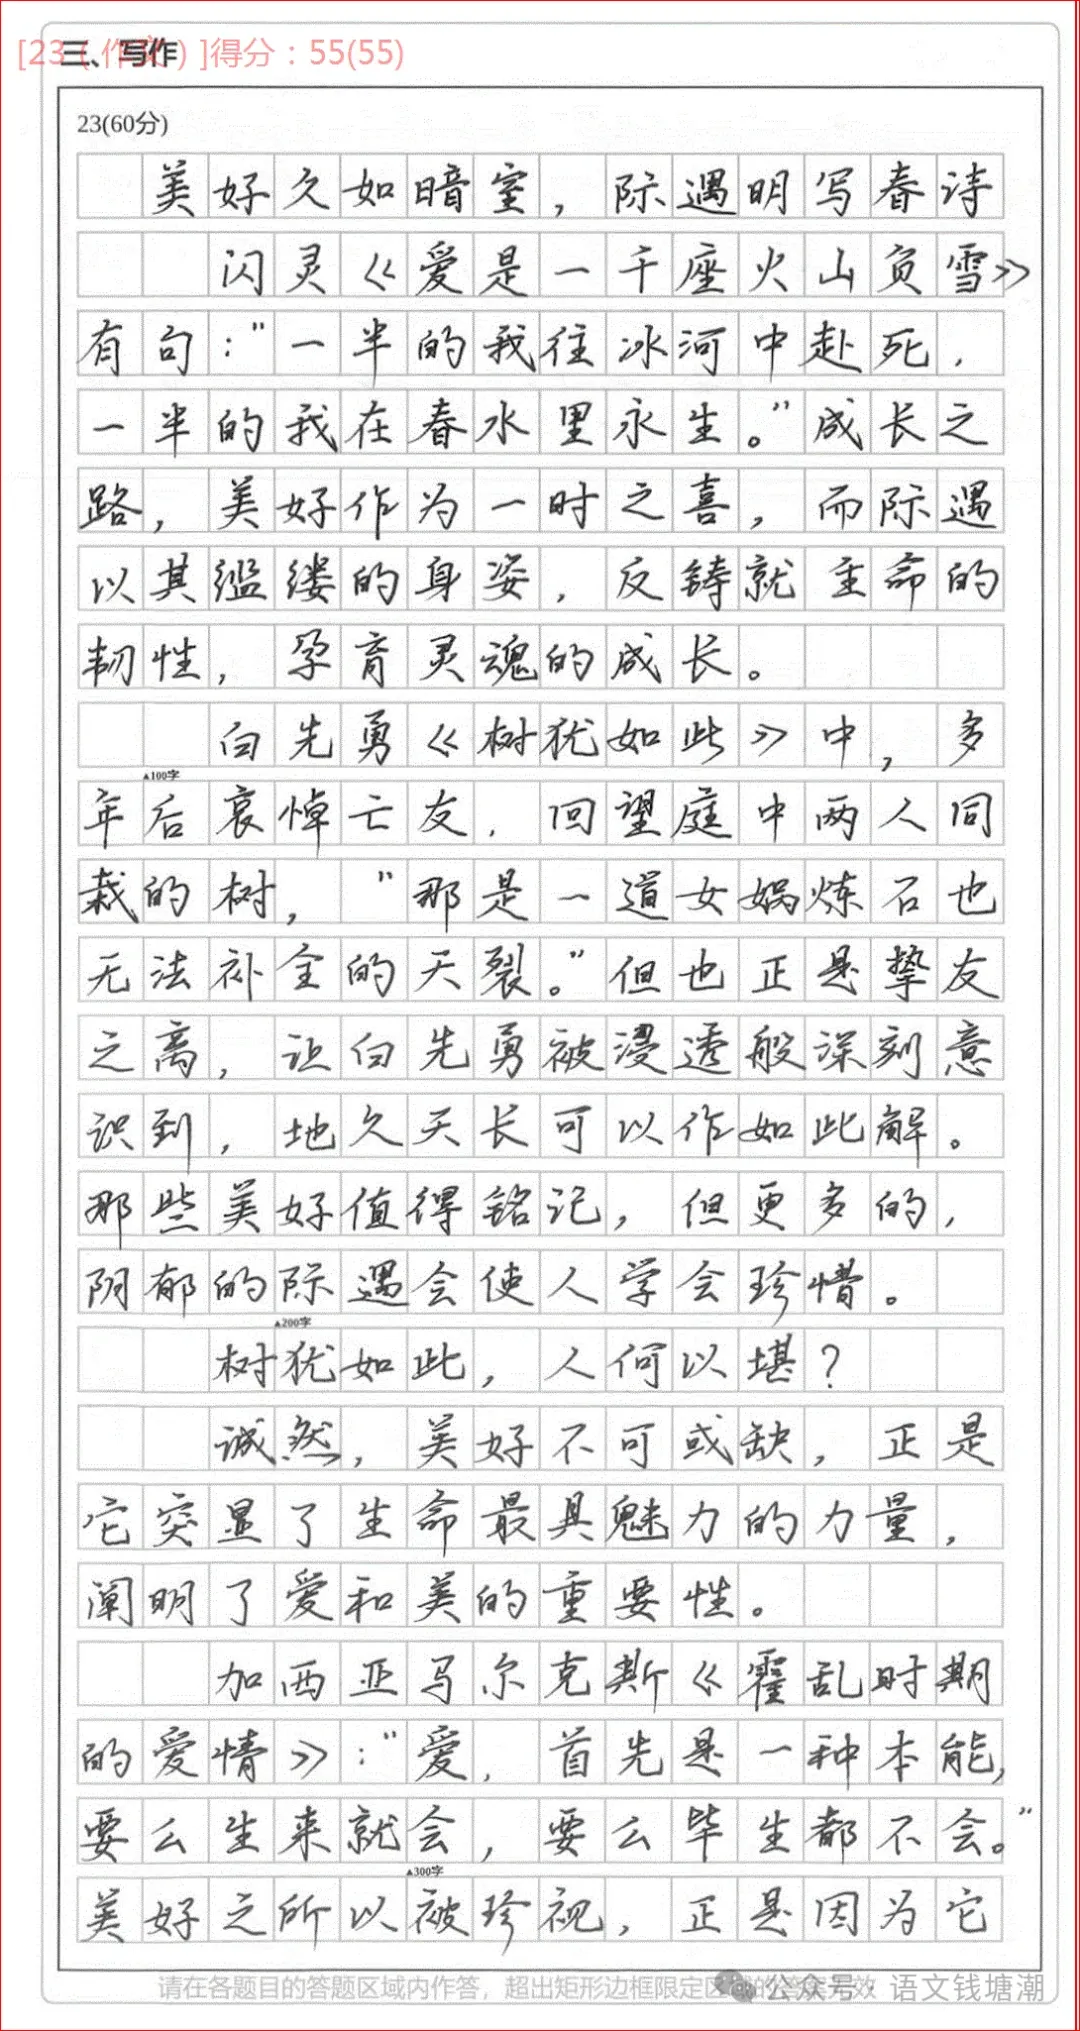 [23（作文）]得分：55(55)
三、写作
23(60分)
美好久如暗室，际遇明写春诗
闪灵《爱是一千座火山负雪》
有句："一半的我往冰河中赴死，
一半的我在春水里永生。"成长之
路，美好作为一时之喜，而际遇
以其缊缕的身姿，反铸就生命的
韧性，孕育灵魂的成长。
白先勇《树犹如此》中，多
▲100字
年后哀悼亡友，回望庭中两人同
栽的树，"那是一道女娲炼石也
无法补全的天裂。"但也正是挚友
之离，让白先勇被浸透般深刻意
识到，地久天长可以作如此解。
那些美好值得铭记，但更多的，
阴郁的际遇会使人学会珍惜。
▲200字
树犹如此，人何以堪？
诚然，美好不可或缺，正是
它突显了生命最具魅力的力量，
阐明了爱和美的重要性。
加西亚马尔克斯《霍乱时期
的爱情》："爱，首先是一种本能，
要么生来就会，要么毕生都不会。"
▲300字
美好之所以被珍视，正是因为它
请在各题目的答题区域内作答，超出矩形边框限定区域的答案无效
公众号·语文钱塘潮